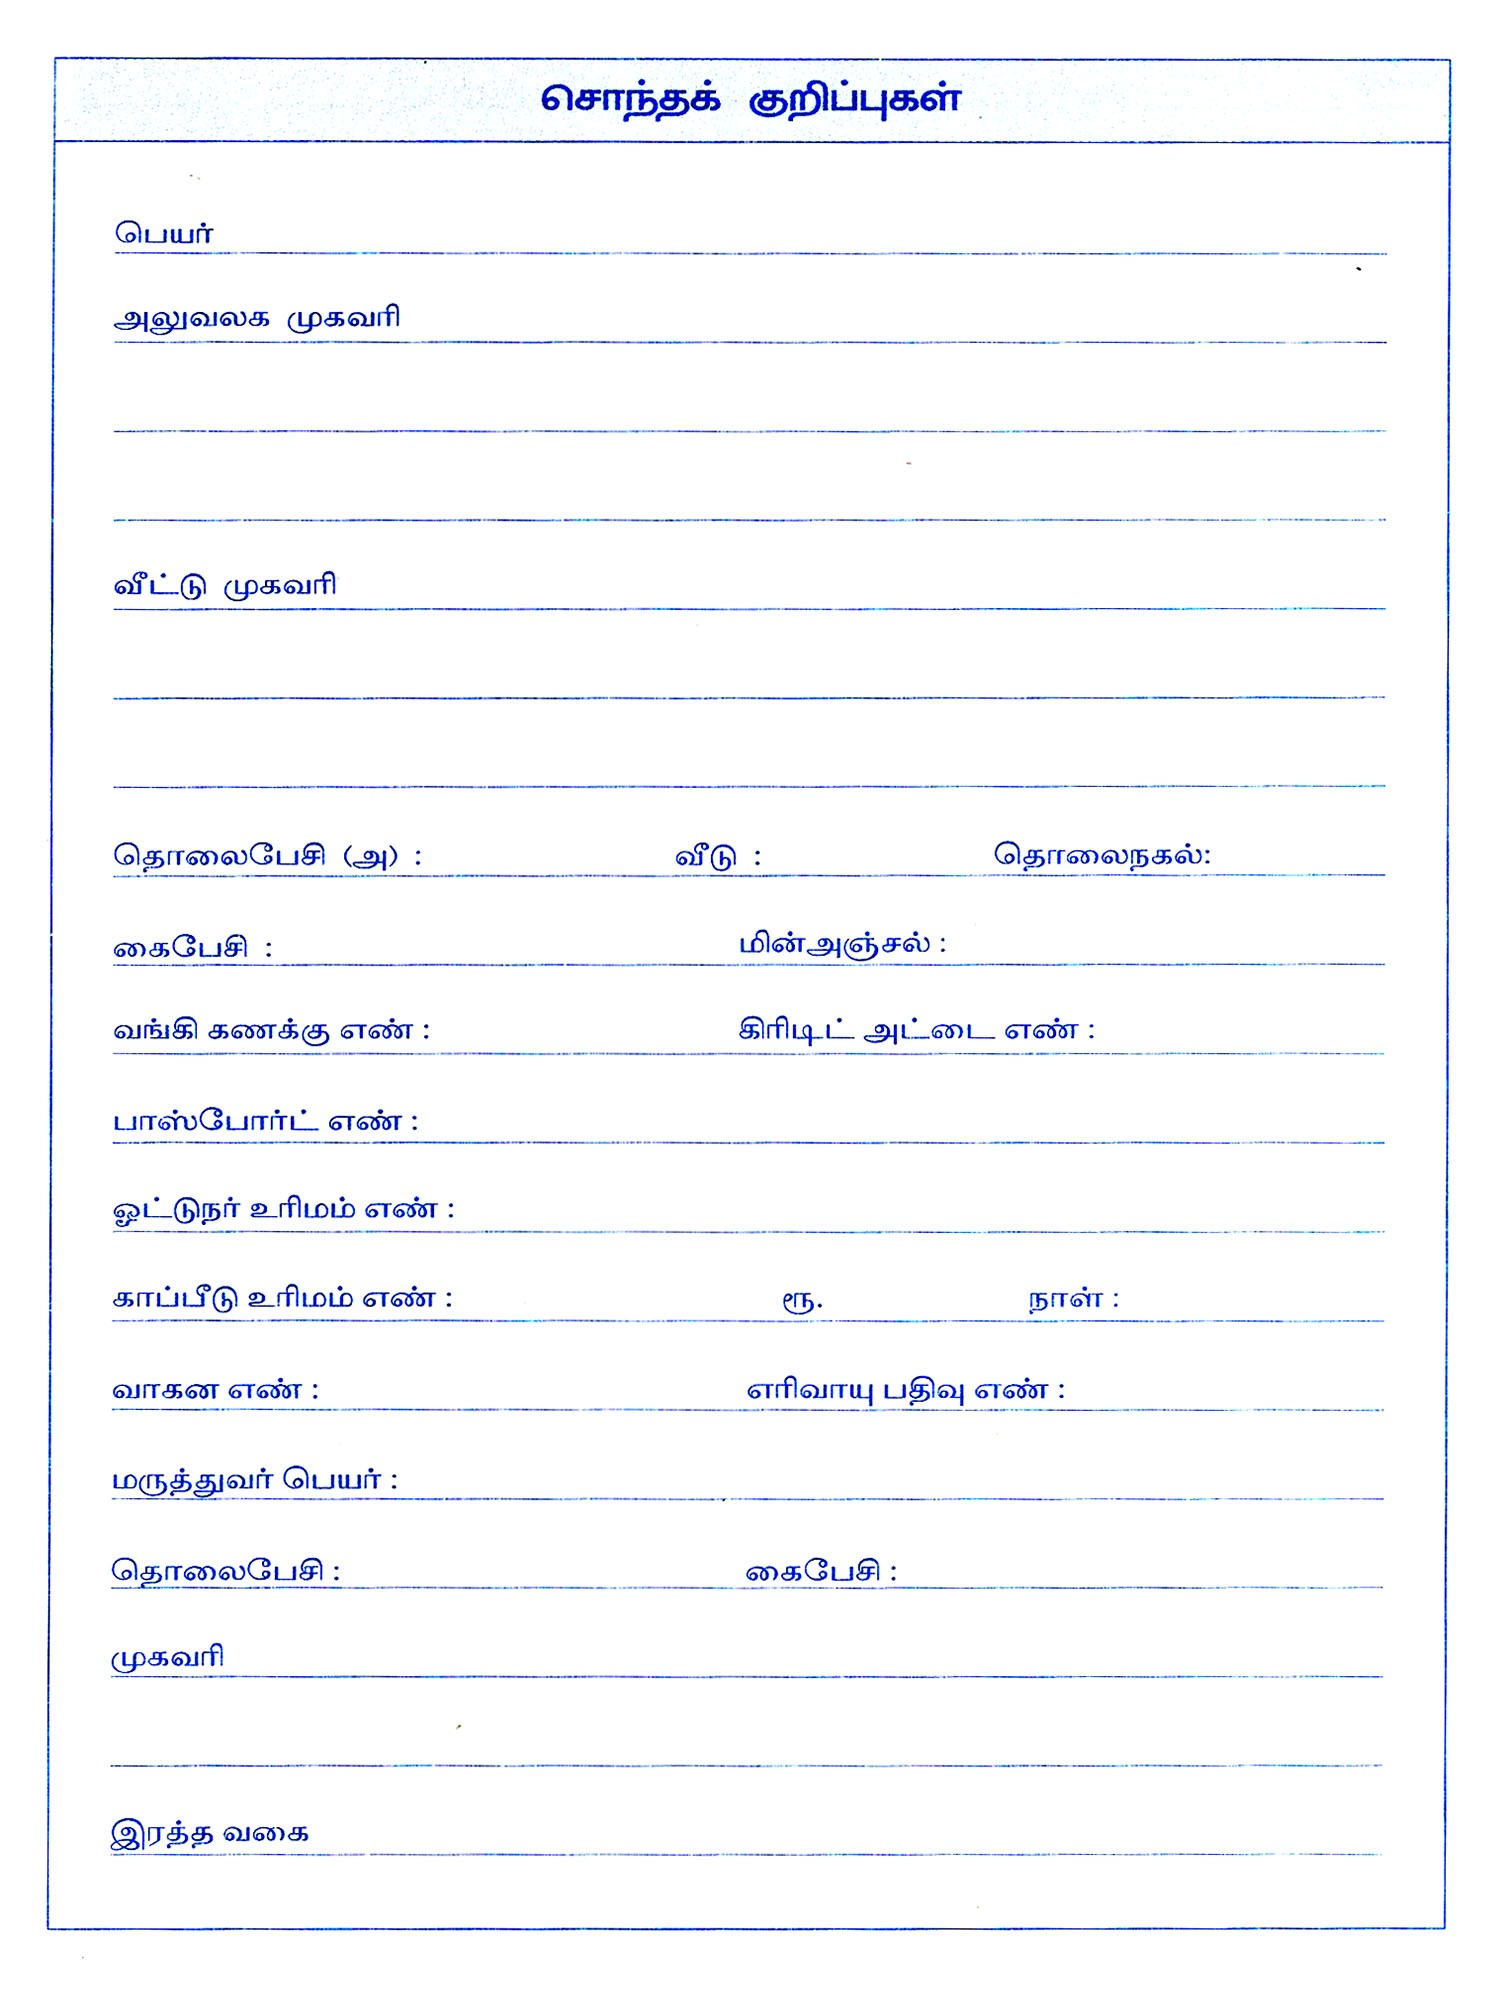 சொந்தக் குறிப்புகள்
பெயர்
அலுவலக முகவரி
வீட்டு முகவரி
தொலைபேசி (அ) : வீடு : தொலைநகல்:
கைபேசி : மின்அஞ்சல் :
வங்கி கணக்கு எண் : கிரிடிட் அட்டை எண் :
பாஸ்போர்ட் எண் :
ஓட்டுநர் உரிமம் எண் :
காப்பீடு உரிமம் எண் : ரூ. நாள் :
வாகன எண் : எரிவாயு பதிவு எண் :
மருத்துவர் பெயர் :
தொலைபேசி : கைபேசி :
முகவரி
இரத்த வகை